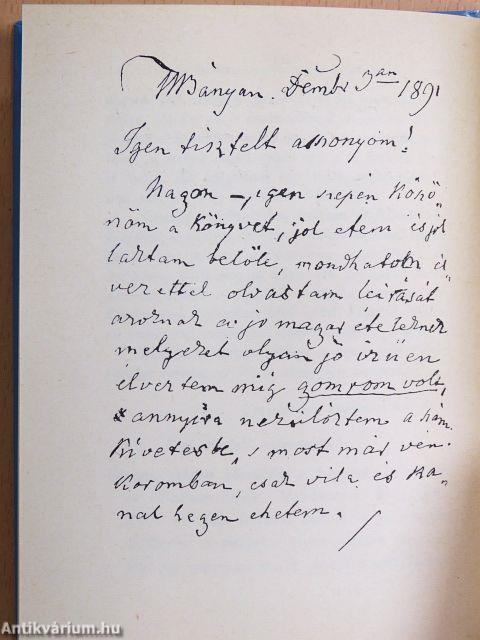 MBányan. Dembr 3an 1891
Igen tisztelt assonyom!
Nagon – igen szepén Köszö„
nöm a Könyvet, jol etem is jol
laztam belöle, mondhatom él„
vezettel olvastam leirását
azoknak a jo magar ételeknek
melyeket olyan jó izüen
élveztem mig gomrom volt,
annyira nezülöztem a hám„
Kivetesbe, s most már vén„
Koromban, csak vila és Ka„
nal hegen ehetem.
Antikvárium.hu